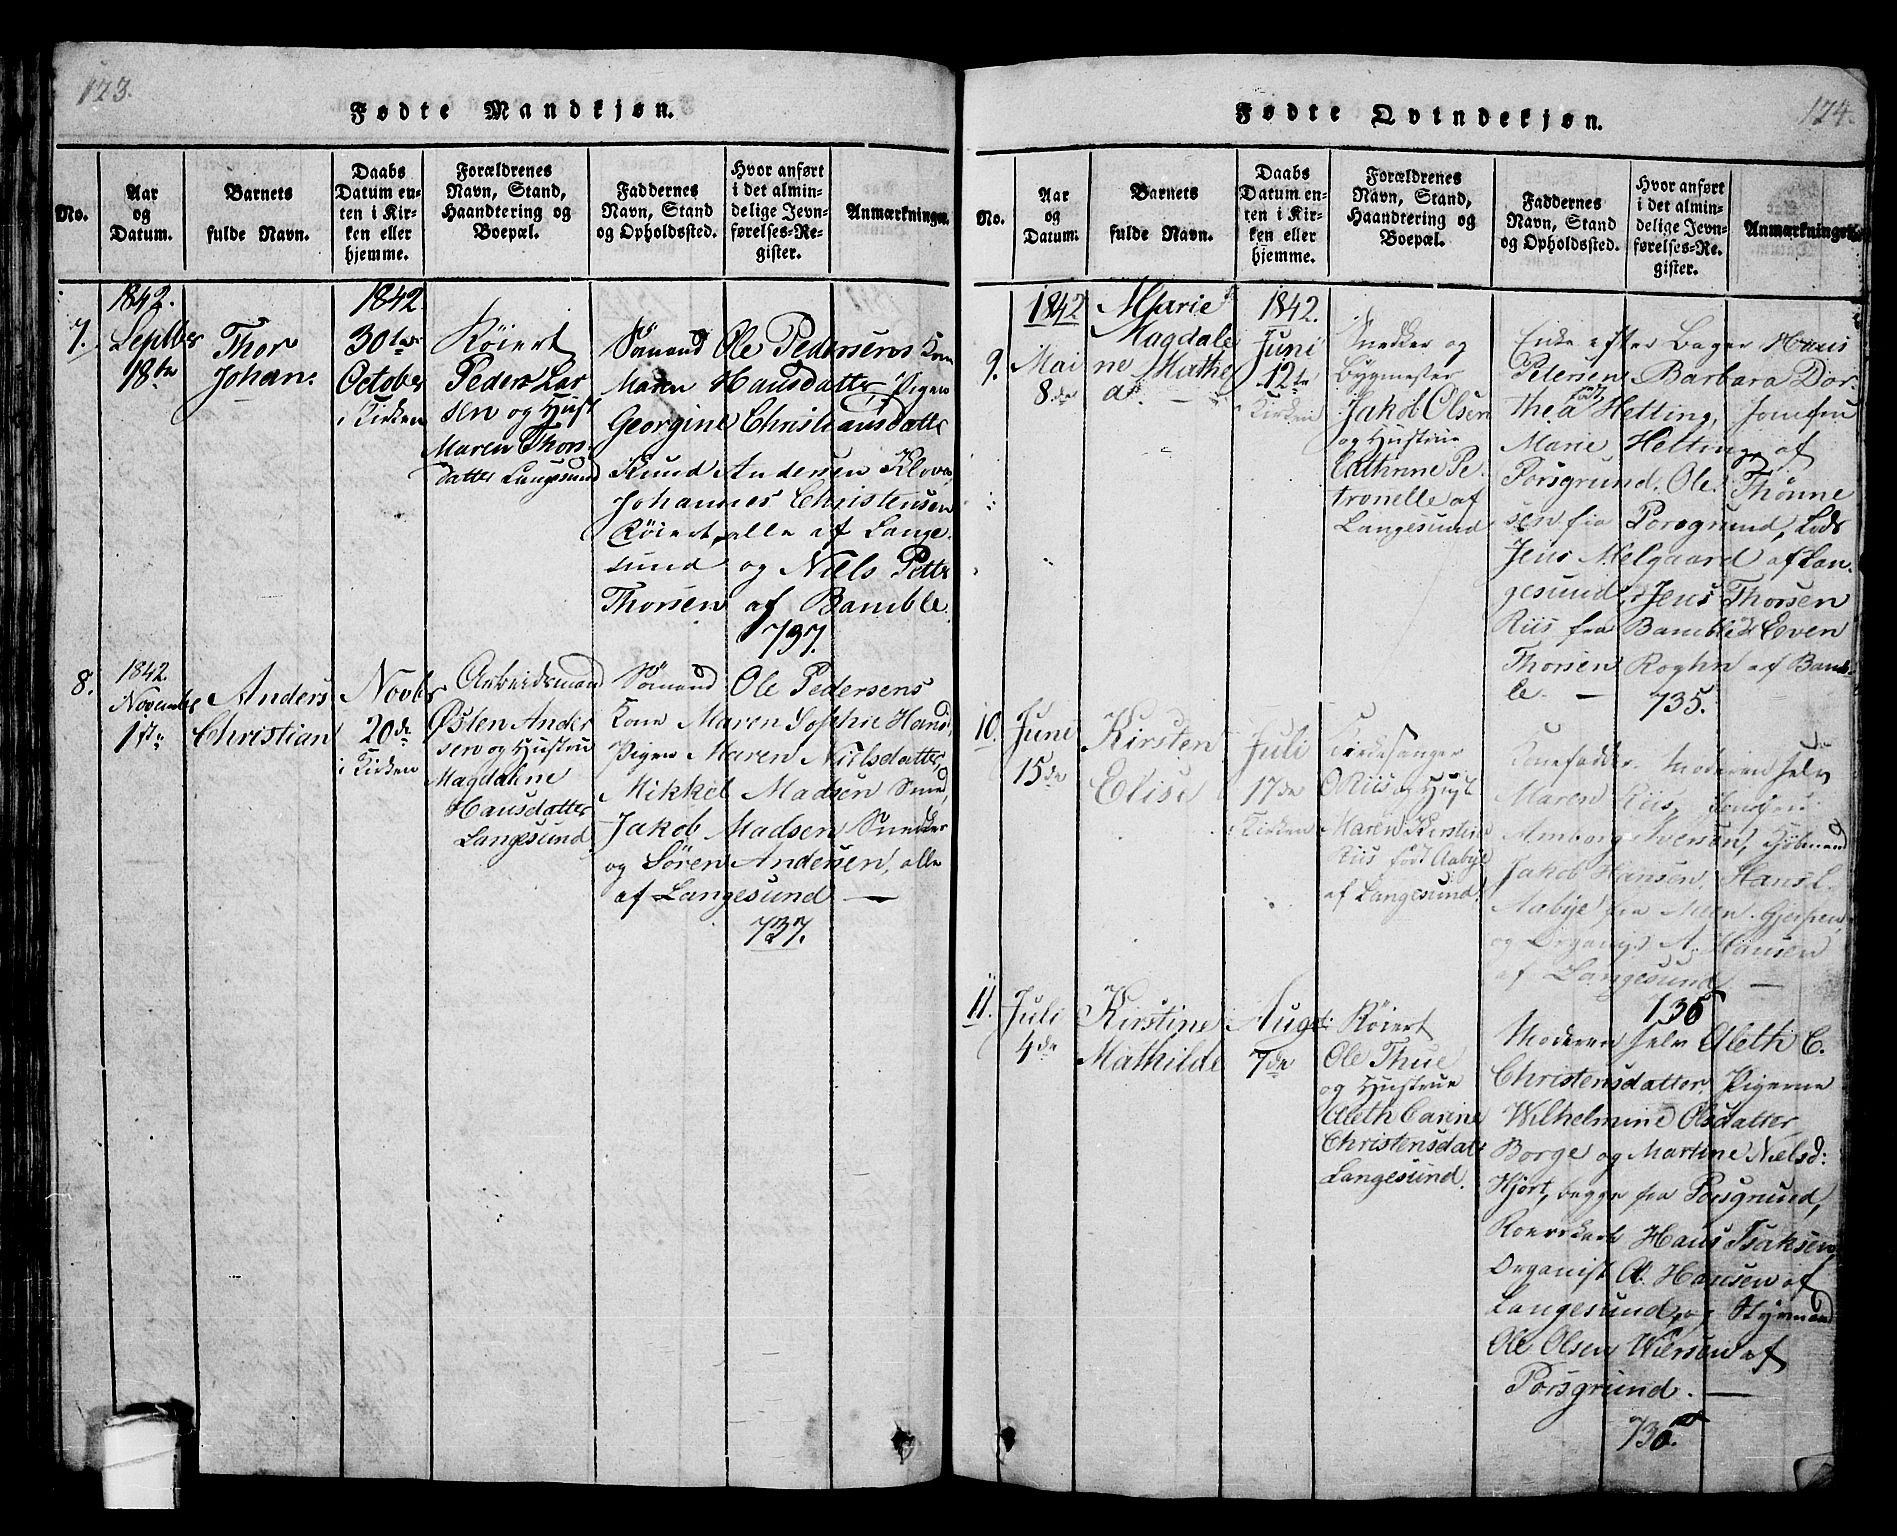 123.
Fødte Mandkjøn.
No.
Aar
og
Datum.
Barnets
fulde Navn.
Daabs
Datum en-
ten i Kir-
ken eller
hjemme.
Forældrenes
Navn, Stand,
Haandtering og
Boepæl.
Faddernes
Navn, Stand
og Opholdssted.
Hvor anført
i det almin-
delige Jevn-
førelses-Re-
gister.
Anmærkninger.
7.
1842.
Septber
18de
Thor
Johan.
1842.
30te
October
i Kirken
Röiert
Peder Lar
sen og Hust
Maren Thors
datter Langesund
Sömand Ole Pedersens Kone
Maren Hansdatter, Pigen
Georgine Christiansdatter
Knud Andersen
Johannes Christensen
Röiert, alle af Lange-
sund og Niels Petter
Thorsen af Bamble.
737.
8.
1842.
November
1ste
Anders
Christian
Novbr
20de
i Kirken
Arbeidsmand
Østen Ander
sen og Hustru
Magdalene
Hansdatter
Langesund.
Sömand Ole Pedersens
Kone Maren Sophie Hansd.
Pigen Maren Nielsdatter,
Mikkel Madsen Smed,
Jakob Madsen Snedker
og Sören Andersen, alle
af Langesund —
737.
124.
Fødte Qvindekjøn.
No.
Aar
og
Datum.
Barnets
fulde Navn.
Daabs
Datum en-
ten i Kir-
ken eller
hjemme.
Forældrenes
Navn, Stand,
Haandtering og
Boepæl.
Faddernes
Navn, Stand
og Opholdssted.
Hvor anført
i det almin-
delige Jevn-
førelses-Re-
gister.
Anmærkninger.
9.
1842
Mai
8de
Marie
Magdale
ne Mathe
a. —
1842.
Juni
12te
i Kirken
Snedker og
Bygmester
Jakob Olsen
og Hustrue
Cathrine Pe-
tronelle af
Langesund
Enke efter Bager Hans
Petersen Barbara Dor-
thea född Hetting, Jomfru
Marie Hetting af
Porsgrund. Ole Thönne
sen fra Porsgrund, Lods
Jens Melgaard af Lan-
gesund, Jens Thorsen
Riis fra Bamble & Even
Thorsen Roghn af Bamb-
le. —
735.
10.
Juni
15de
Kirsten
Elise
Juli
17de
i Kirken
Kirkesanger
O Riis og Hust
Maren Kirstine
Riis født Aabye
af Langesund.
Konefadder Moderen selv
Maren Riis, Jomfru
Amborg Iversen, Kjöbmand
Jakob Hansen, Hans L.
Aabye fra Moen Gjerpen,
og Organist A. Hansen
af Langesund —
736
11.
Juli
4de
Kirstine
Mathilde
Aug:
7de
Röiert
Ole Thue
og Hustrue
Aleth Carine
Christensdatr
Langesund.
Moderen selv Aleth C.
Christensdatter. Pigerne
Wilhelmine Olsdatter
Borge og Martine Nielsd:
Hjort, begge fra Porsgrund,
Hans Isaksen,
Organist A. Hansen af
Langesund, og Styrmand
Ole Olsen Wiersen af
Porsgrund. —
736.